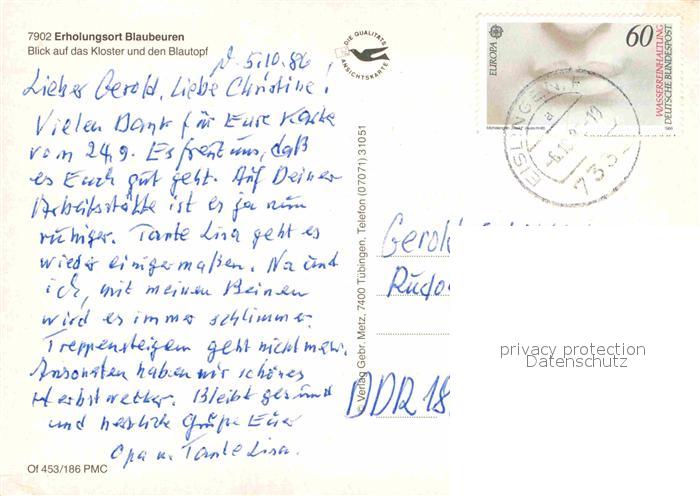 7902 Erholungsort Blaubeuren
Blick auf das Kloster und den Blautopf
5.10.86
Lieber Gerold, Liebe Christine!
Vielen Dank für Eure Karte
vom 24.9. Es freut uns, daß
es Euch gut geht. Auf Deiner
Arbeitsstätte ist es ja nun
ruhiger. Tante Lisa geht es
wieder einigermaßen. Na und
ich, mit meinen Beinen
wird es immer schlimmer.
Treppensteigen geht nicht mehr.
Ansonsten haben wir schönes
Herbstwetter. Bleibt gesund
und herzliche Grüße Euer
Opa u. Tante Lisa.
Of 453/186 PMC
DIE QUALITÄTS
ANSICHTSKARTE
© Verlag Gebr. Metz, 7400 Tübingen, Telefon (07071) 31051
EUROPA
60
WASSERREINHALTUNG
DEUTSCHE BUNDESPOST
EISLINGEN
a
-6.10
-19
733
Gerold
Rudo
DDR 18
privacy protection
Datenschutz